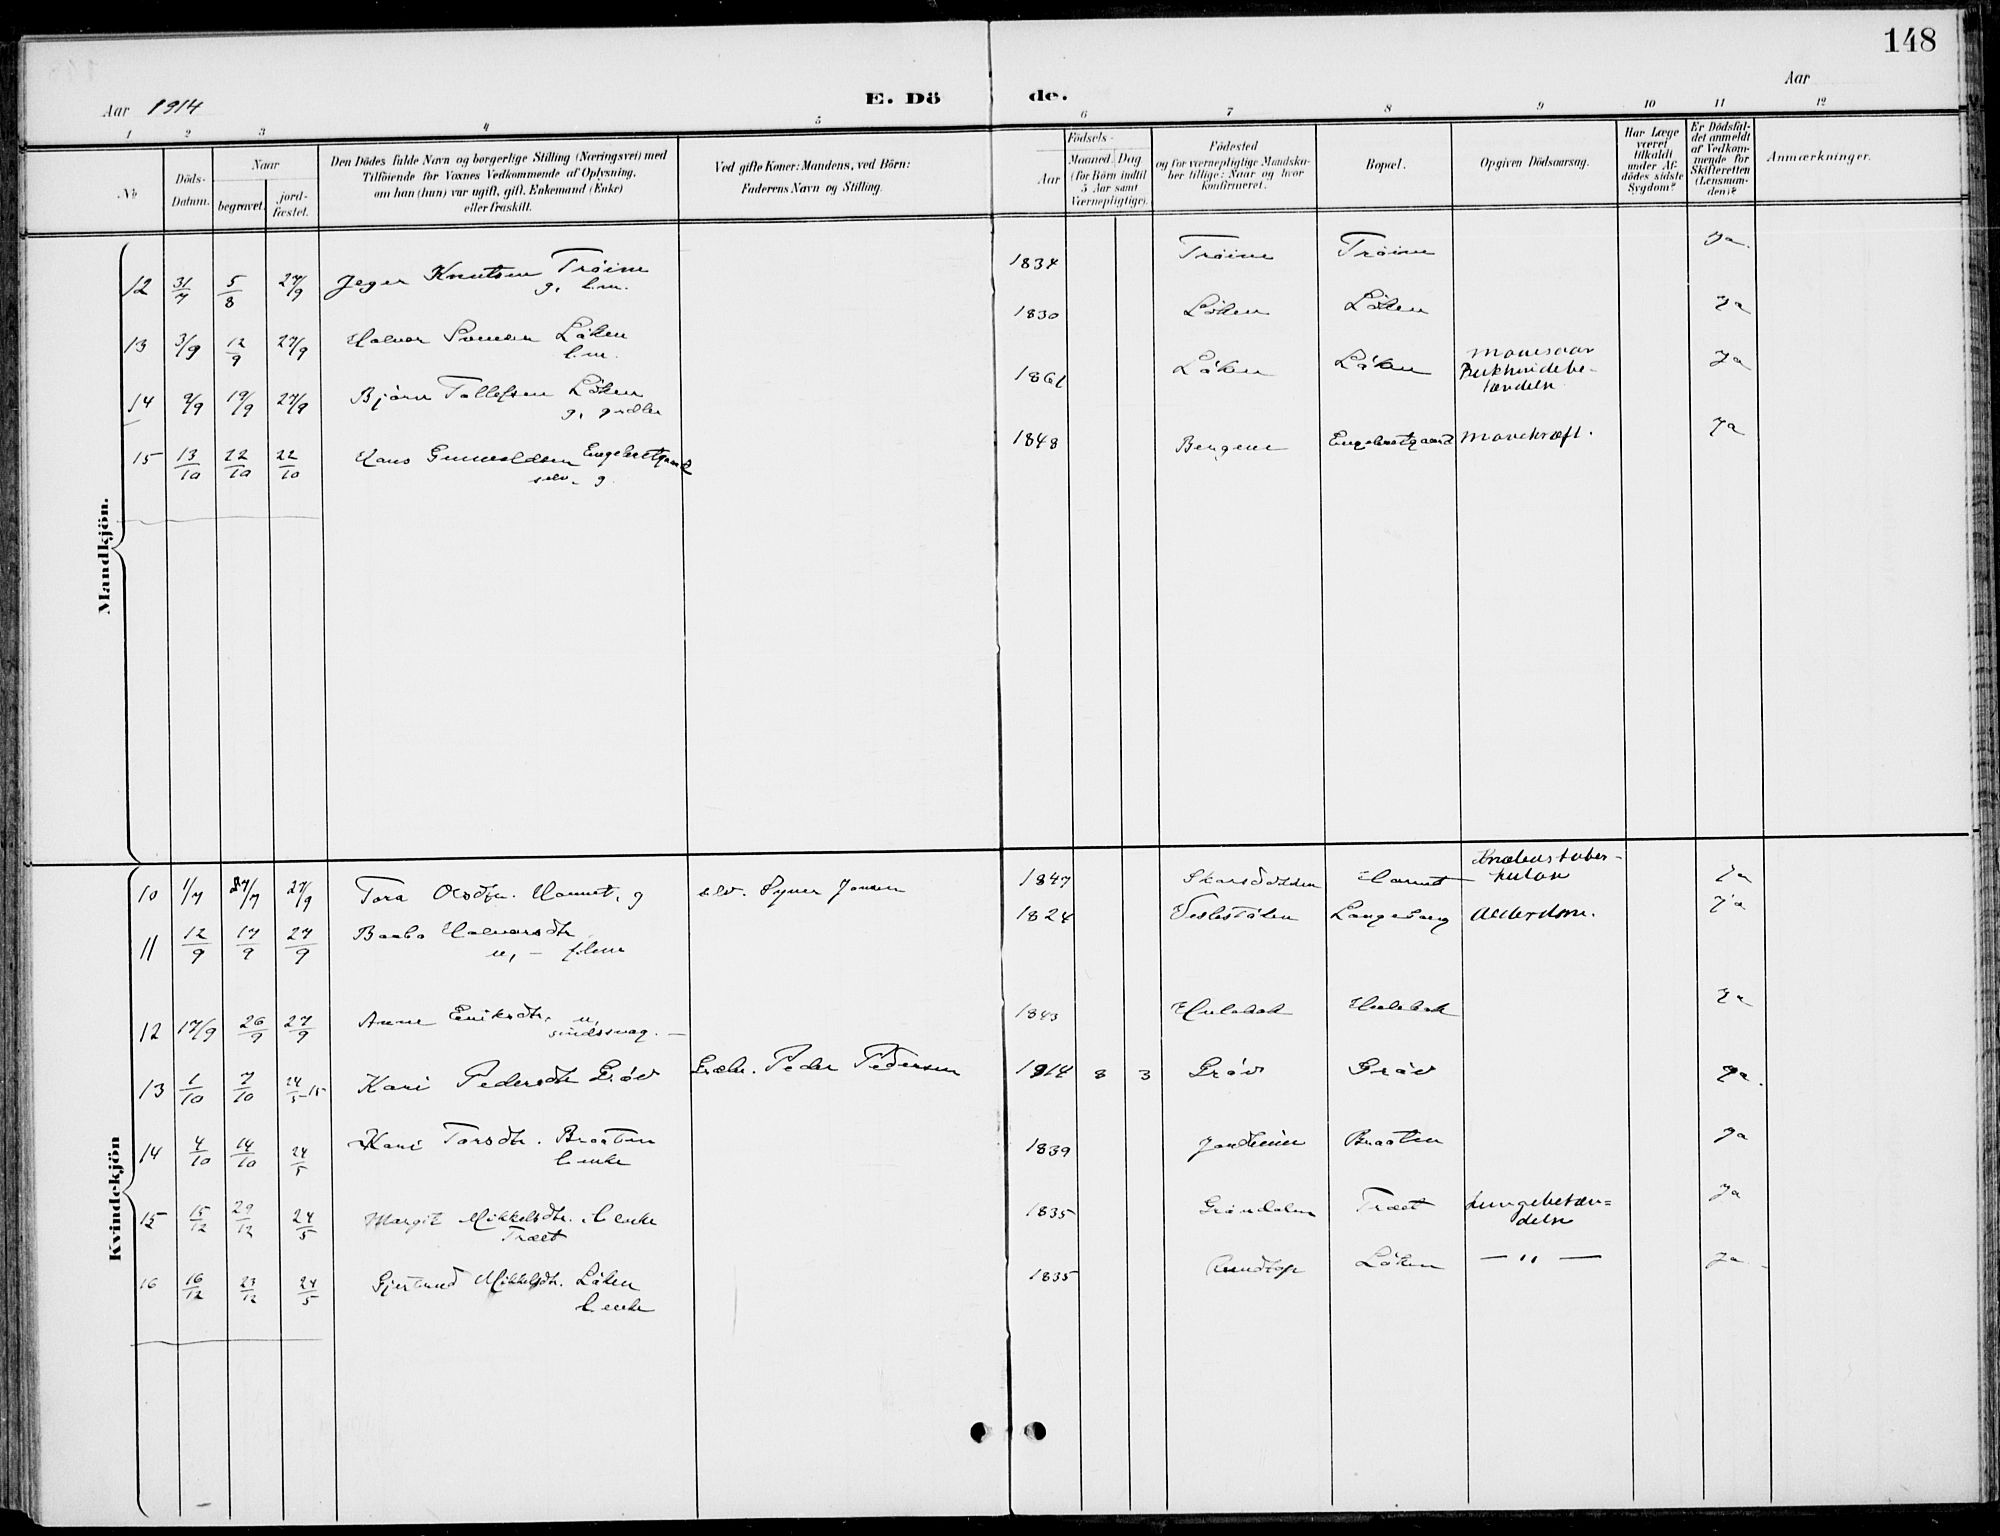 148
Aar 1914
E. Dö de.
Aar
1 2 3 4 5 6 7 8 9 10 11 12
No.
Döds-Datum.
Naar
begravet.
jord-fæstet.
Den Dödes fulde Navn og borgerlige Stilling (Næringsvei) med
Tilföiende for Voxnes Vedkommende af Oplysning,
om han (hun) var ugift, gift, Enkemand (Enke)
eller fraskilt.
Ved gifte Koner: Mandens, ved Börn:
Faderens Navn og Stilling.
Födsels-
Aar
Maaned. Dag.
(for Börn indtil
5 Aar samt
Værnepligtige).
Födested
og for værnepligtige Mandskaber tillige: Naar og hvor
konfirmeret.
Bopæl.
Opgiven Dödsaarsag.
Har Læge
været
tilkaldt
under Afdödes sidste
Sygdom?
Er Dödsfaldet anmeldt
af Vedkommende for
Skifteretten
(Lensmanden)?
Anmærkninger.
Mandkjön.
12 31/7 5/8 27/9 Jeger Knutsen Tröim 1834 Tröim Tröim Ja.
g. k.m.
13 3/9 12/9 27/9 Halvor Svensen Löken 1830 Löken Löken Ja
k.m.
14 9/9 19/9 27/9 Björn Tollefsen Löken 1861 Löken Löken Mavesaar Bukhindebe-tændelse Ja
g. grdbr
15 13/10 22/10 22/10 Hans Gunnuldsen Engebretgaard 1848 Bergene Engebretgaard Mavekræft. Ja
selv. g.
Kvindekjön
10 1/7 27/9 Tora Olsdtr. Hamut, g selv. Syver Jonsen 1847 Skarsdalen Hamut Knækenstuber-kulose Ja
11 12/9 17/9 27/9 Baabo Halvorsdtr. 1824 Veslestölen Langehaug Alderdom. Ja
u, –
12 17/9 26/9 27/9 Anne Eriksdtr. u, 1843 Hulebak Hulebak Ja
sindssvag. –
13 1/10 7/10 24/5-15 Kari Pedersdtr. Gröv Peder Pedersen 1914 8 3 Gröv Gröv Ja.
14 4/10 14/10 24/5 Kari Torsdtr. Braaten 1839 Jordheim Braaten Ja
k. enke
15 15/12 29/12 24/5 Margit Mikkelsdtr. k. enke 1835 Gröndalen Træet Lungebetæn-delse Ja
Træet
16 16/12 23/12 24/5 Gjertrud Mikkelsdtr. Löken 1835 Löken – " – Ja.
k. enke